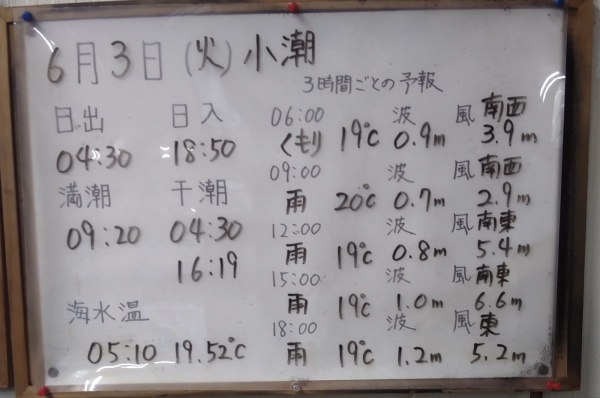 6月3日(火)小潮
3時間ごとの予報
日出 日入
04:30 18:50
満潮 干潮
09:20 04:30
16:19
海水温
05:10 19.52℃
06:00 波 風 南西
くもり 19℃ 0.9m 3.9m
09:00 波 風 南西
雨 20℃ 0.7m 2.9m
12:00 波 風 南東
雨 19℃ 0.8m 5.4m
15:00 波 風 南東
雨 19℃ 1.0m 6.6m
18:00 波 風 東
雨 19℃ 1.2m 5.2m